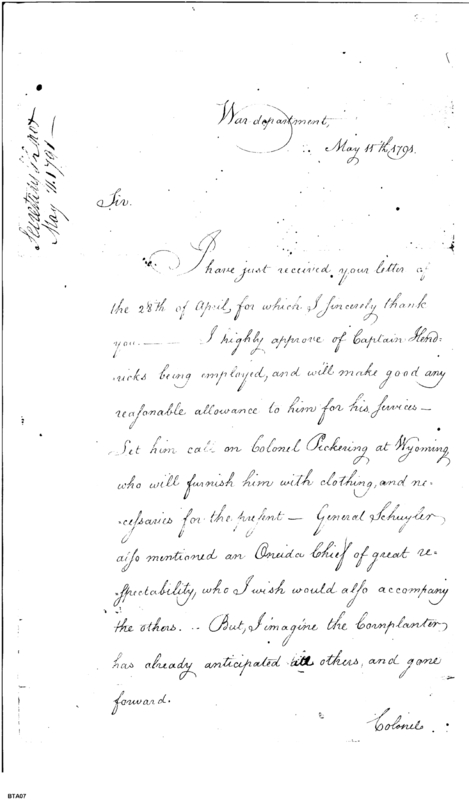 War department,
May 11th, 1791.
Sir.
I have just received your letter of
the 28th of April, for which I sincerely thank
you. — I highly approve of Captain Hend-
-ricks being employed, and will make good any
reasonable allowance to him for his services —
Let him call on Colonel Pickering at Wyoming
who will furnish him with clothing, and ne-
-cessaries for the present — General Schuyler
also mentioned an Oneida Chief of great re-
spectability, who I wish would also accompany
the others. .. But, I imagine the Cornplanter
has already anticipated all others, and gone
forward.
Colonel
May 11. 1791 —
BTA07